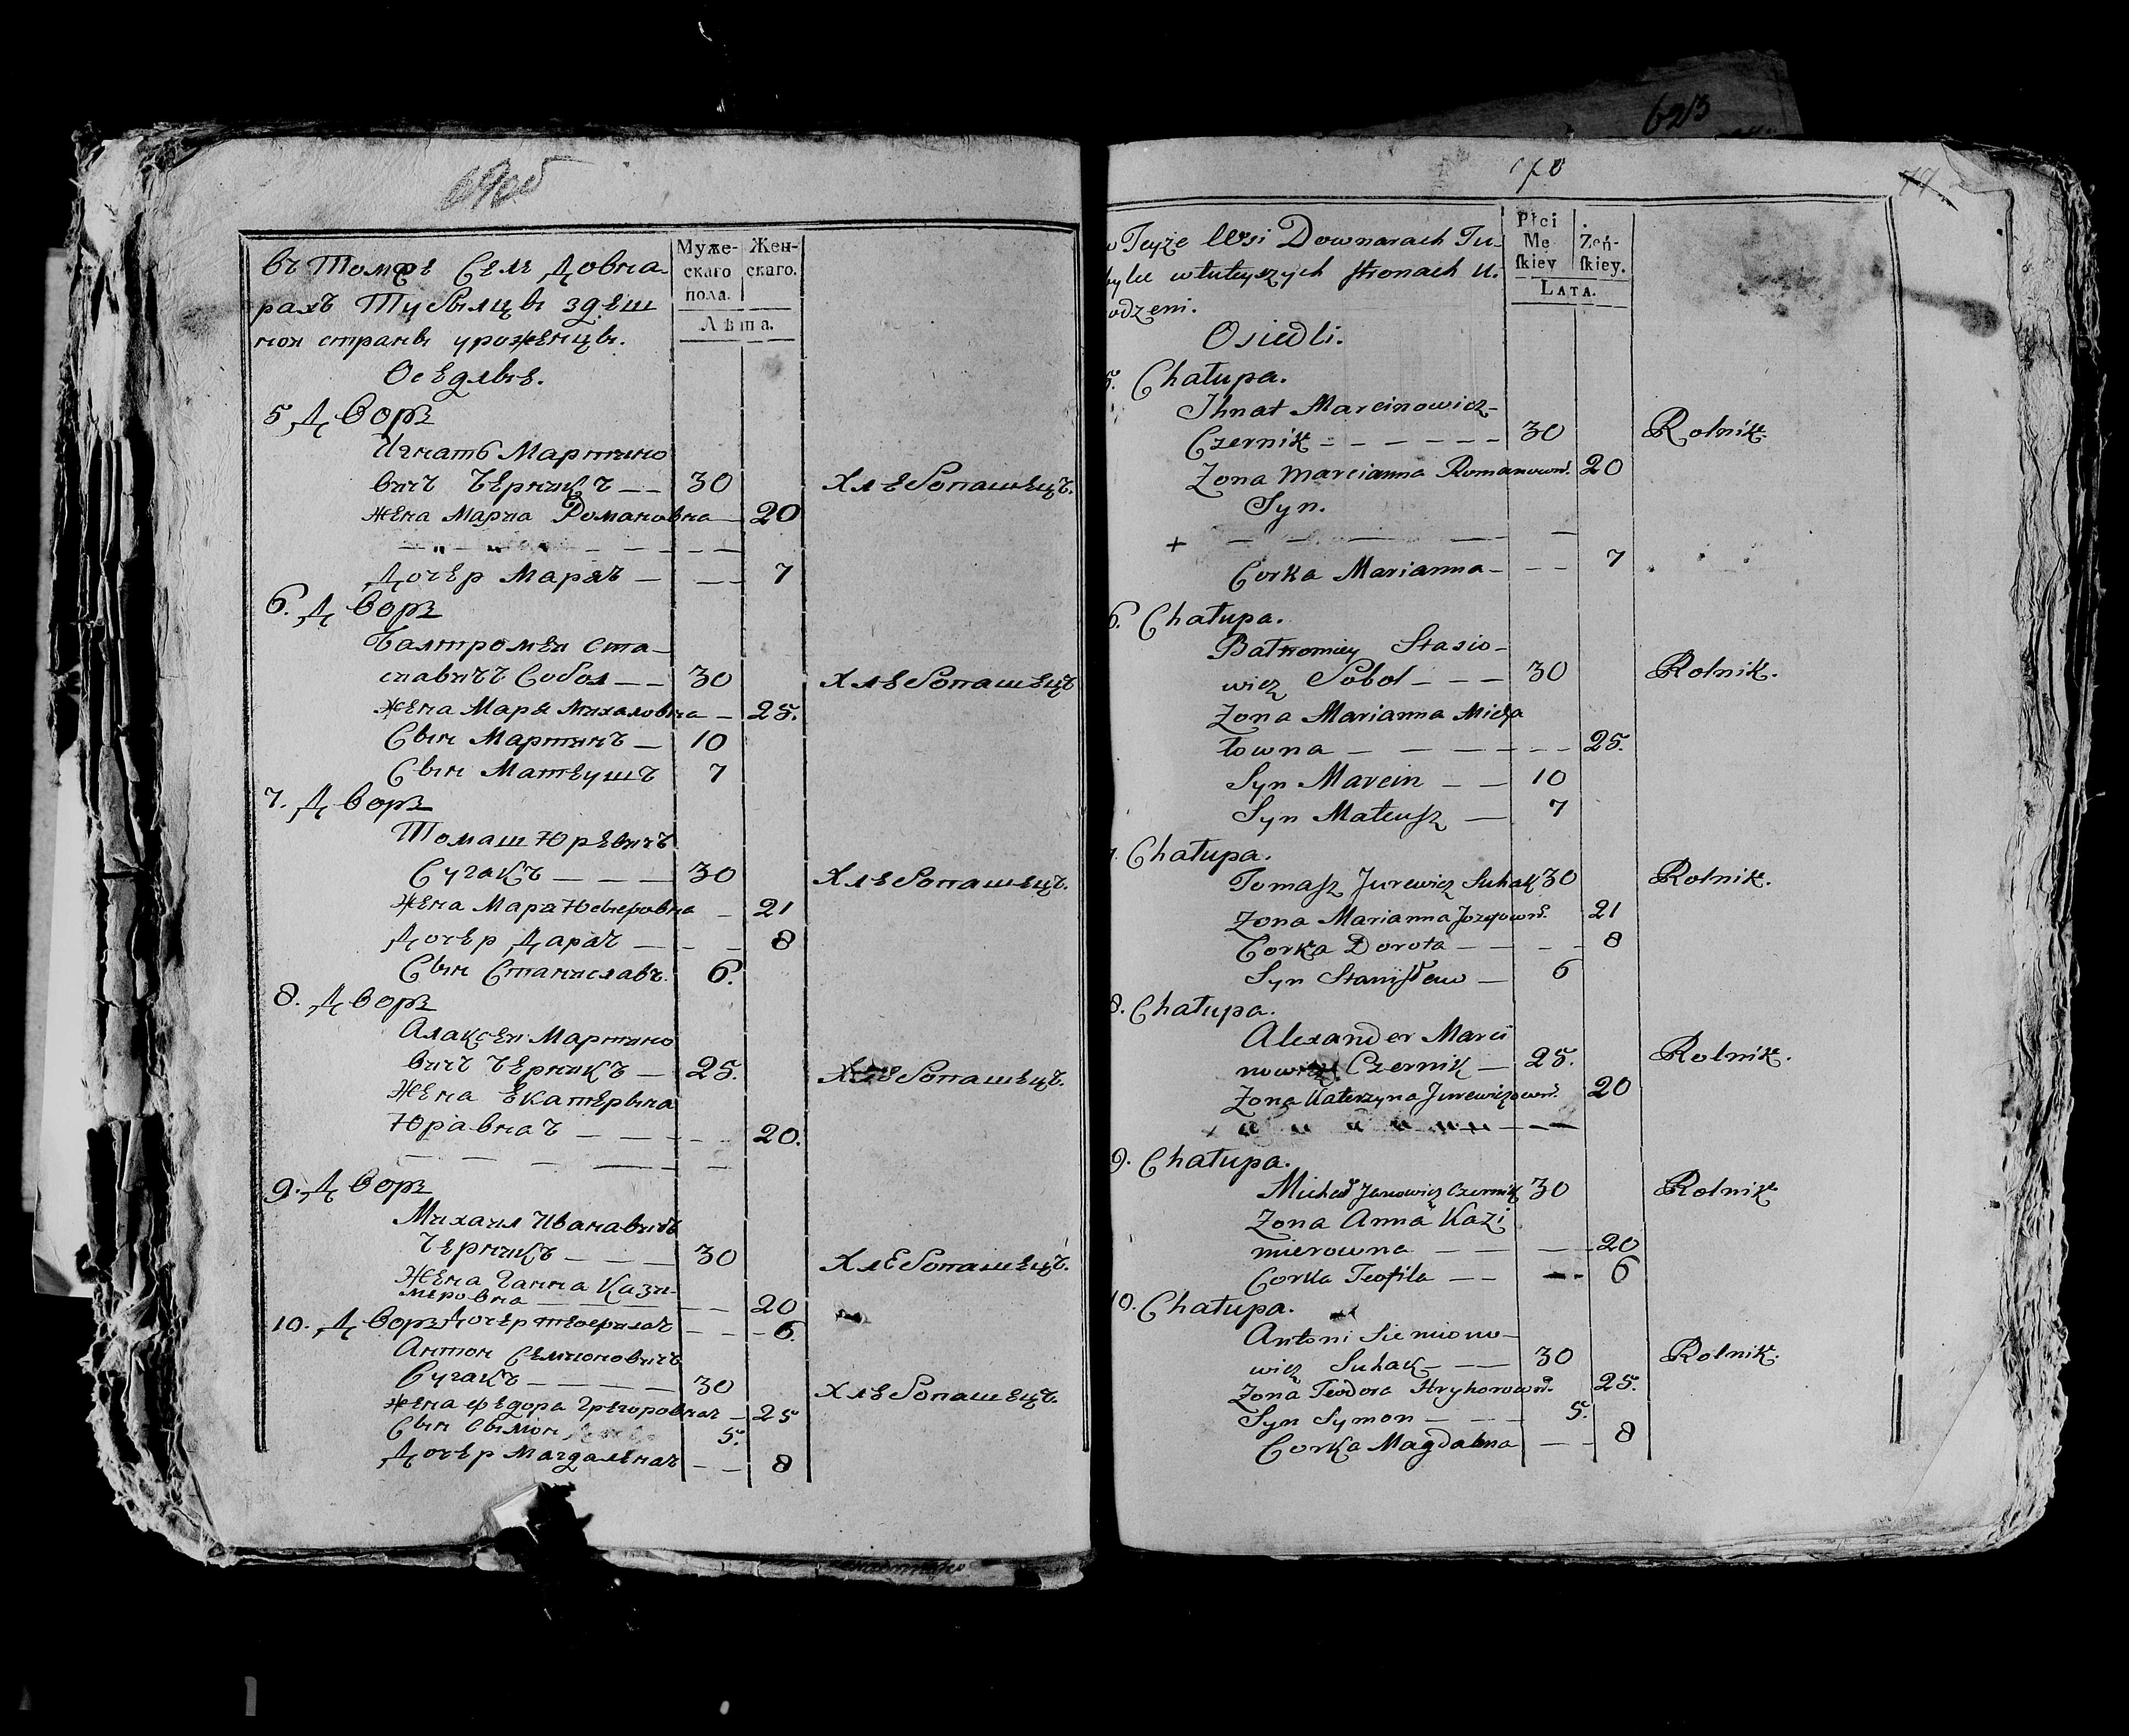 623
въ Томже Селе Довна-
рахъ Тубылцы здеш
ной страны уроженцы.
Оседлые.
Муже-
скаго
пола.
Жен-
скаго.
Лѣта.
5 Дворъ
Игнатъ Мартино
вичъ Черникъ — — 30 Хлебопашецъ.
Жена Мариа Романовна — 20
Дочер Маряъ — — — 7
6. Дворъ
Балтромей Ста-
славичъ Собол — — 30 Хлебопашецъ
Жена Маря Михаловна — 25.
Сын Мартинъ — 10
Сын Матеушъ 7
7. Дворъ
Томаш Юревичъ
Сугакъ — — — 30 Хлебопашецъ.
Жена Маря Юсиеровна — 21
Дочер Дараъ — — — 8
Сын Станиславъ. 6.
8. Дворъ
Алаксей Мартино
вичъ Черникъ — 25. Хлебопашецъ.
Жена Екатерына
Юравнаъ — — — — 20.
9. Дворъ
Михаил Иванавичъ
Черникъ — — — 30 Хлебопашецъ.
Жена Ганна Кази-
меровна — — — — 20
10. Дворъ Дочер теофилаъ — — — 6.
Антон Семионовичъ
Сугакъ — — — — — 30 Хлебопашецъ.
Жена Федора Григоровнаъ — 25
Сын Сымон 5.
Дочер Магдаленаъ — — 8
170
77
w Teyże Wsi Downarach Tu-
bylce w tuteyszych stronach u.
rodzeni.
Osiedli.
Płci
Mę
skiey
Żeń-
skiey.
LATA.
5. Chałupa.
Ihnat Marcinowicz-
Czernik – – – – – – 30 Rolnik.
Zona Marcianna Romanown. 20
Syn.
+ — — — — —
Corka Marianna – – – 7
6. Chałupa.
Bałtromiey Stasio-
wicz Sobol – – – 30 Rolnik.
Zona Marianna Micha
łowna — — — — – – 25.
Syn Marcin — — 10
Syn Mateusz — 7
7. Chałupa.
Tomasz Jurewicz Suhak 30 Rolnik.
Zona Marianna Jozefown. 21
Corka Dorota — — — – 8
Syn Stanisław — 6
8. Chałupa.
Alexander Marci
nowicz Czernik — 25. Rolnik.
Zona Katerzyna Jurewiczown. 20
9. Chałupa.
Michał Janowicz Czernik 30 Rolnik
Zona Anna Kazi
mierowna — — — – 20
Corka Teofila — — — - 6
10. Chałupa.
Antoni Siemiono-
wicz Suhak – — — 30 Rolnik.
Zona Teodora Hryhorown. 25.
Syn Symon — — — 5.
Corka Magdalena — – 8